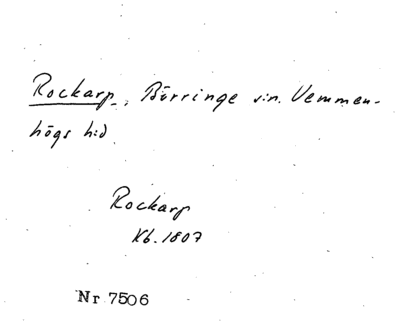 Rockarp, Börringe sn. Vemmen-
högs hd
Rockarp
Kb. 1807
Nr 7506